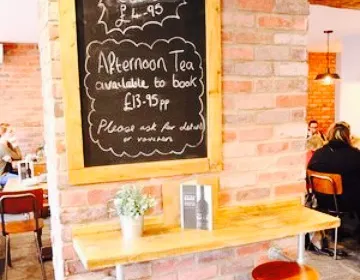 £4.95
Afternoon Tea
available to book
£13.95pp
Please ask for details
or vouchers